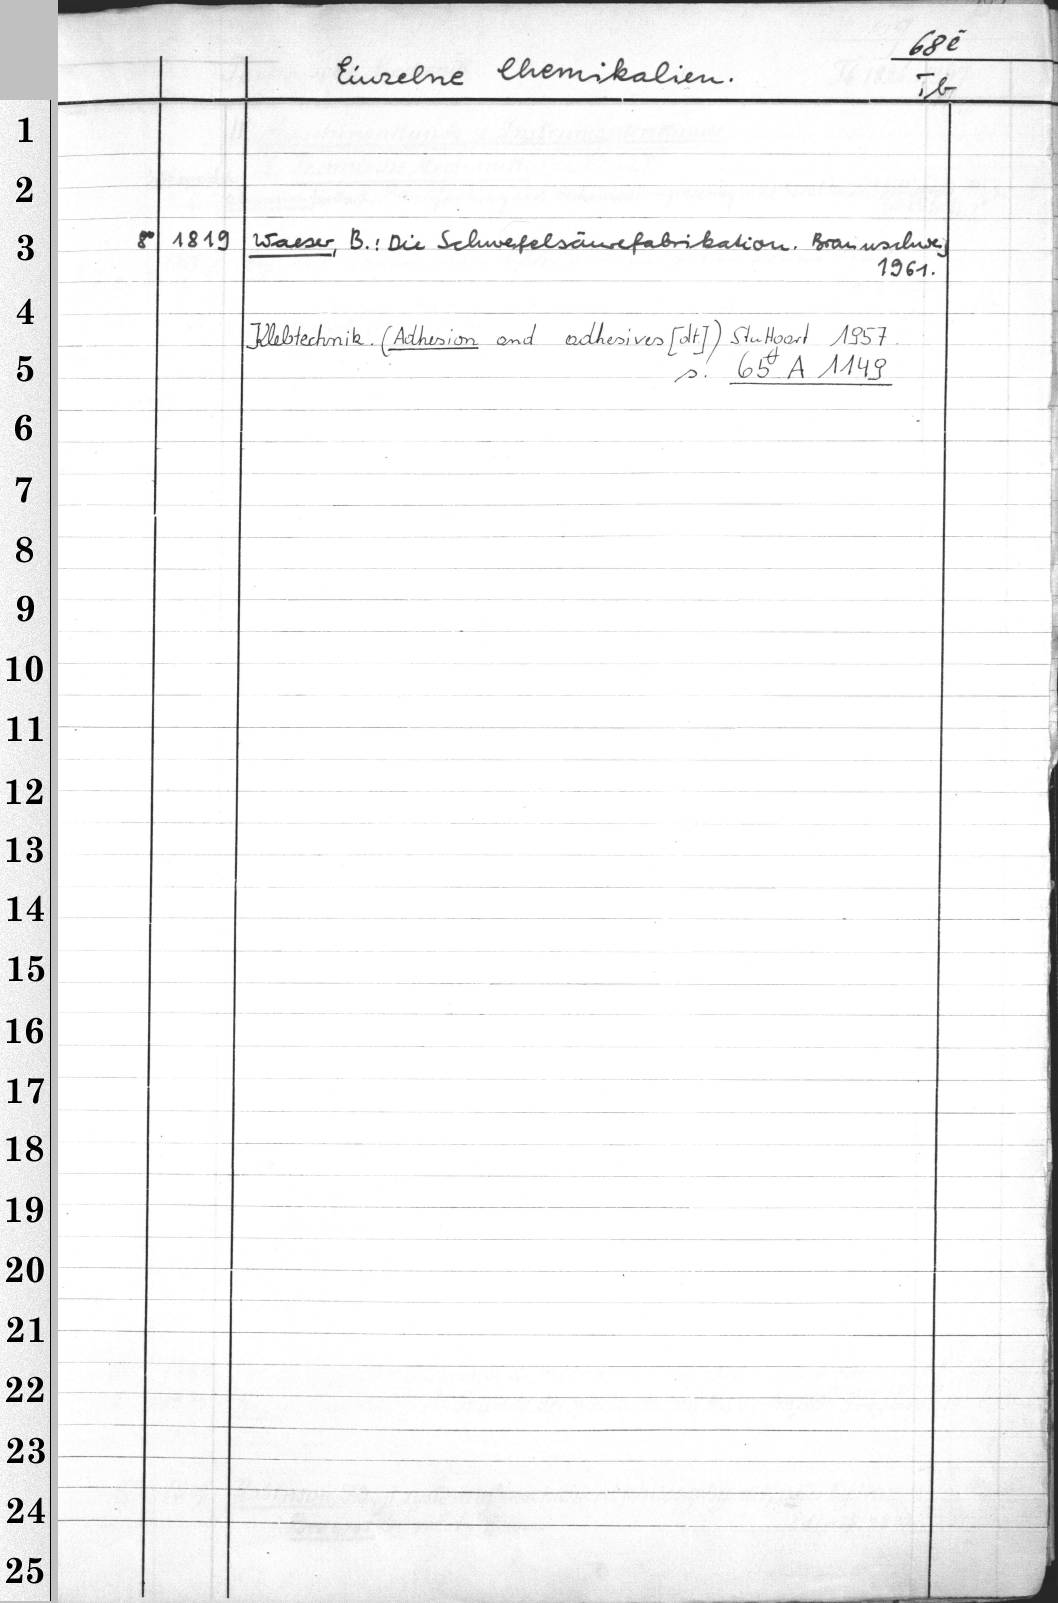 68ē
Einzelne Chemikalien.
Ib
1
2
3
8° 1819 Waeser, B.: Die Schwefelsäurefabrikation. Braunschweig
1961.
4
Klebtechnik. (Adhesion and adhesives [dt.]) Stuttgart 1957.
5
s. 65t A 1149
6
7
8
9
10
11
12
13
14
15
16
17
18
19
20
21
22
23
24
25